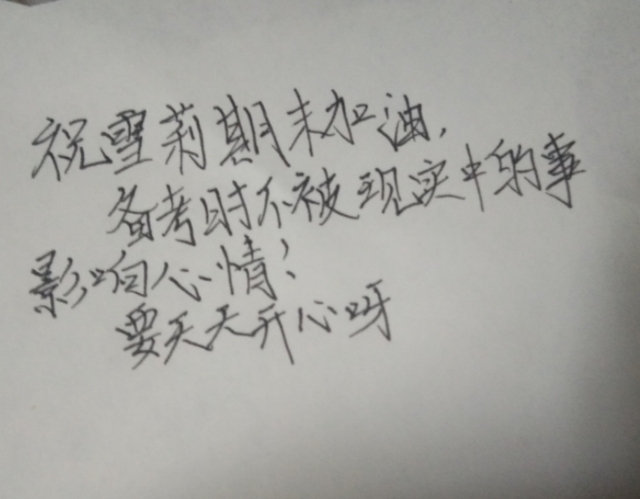 祝雪莉期末加油,
备考时不被现实中的事
影响心情!
要天天开心呀